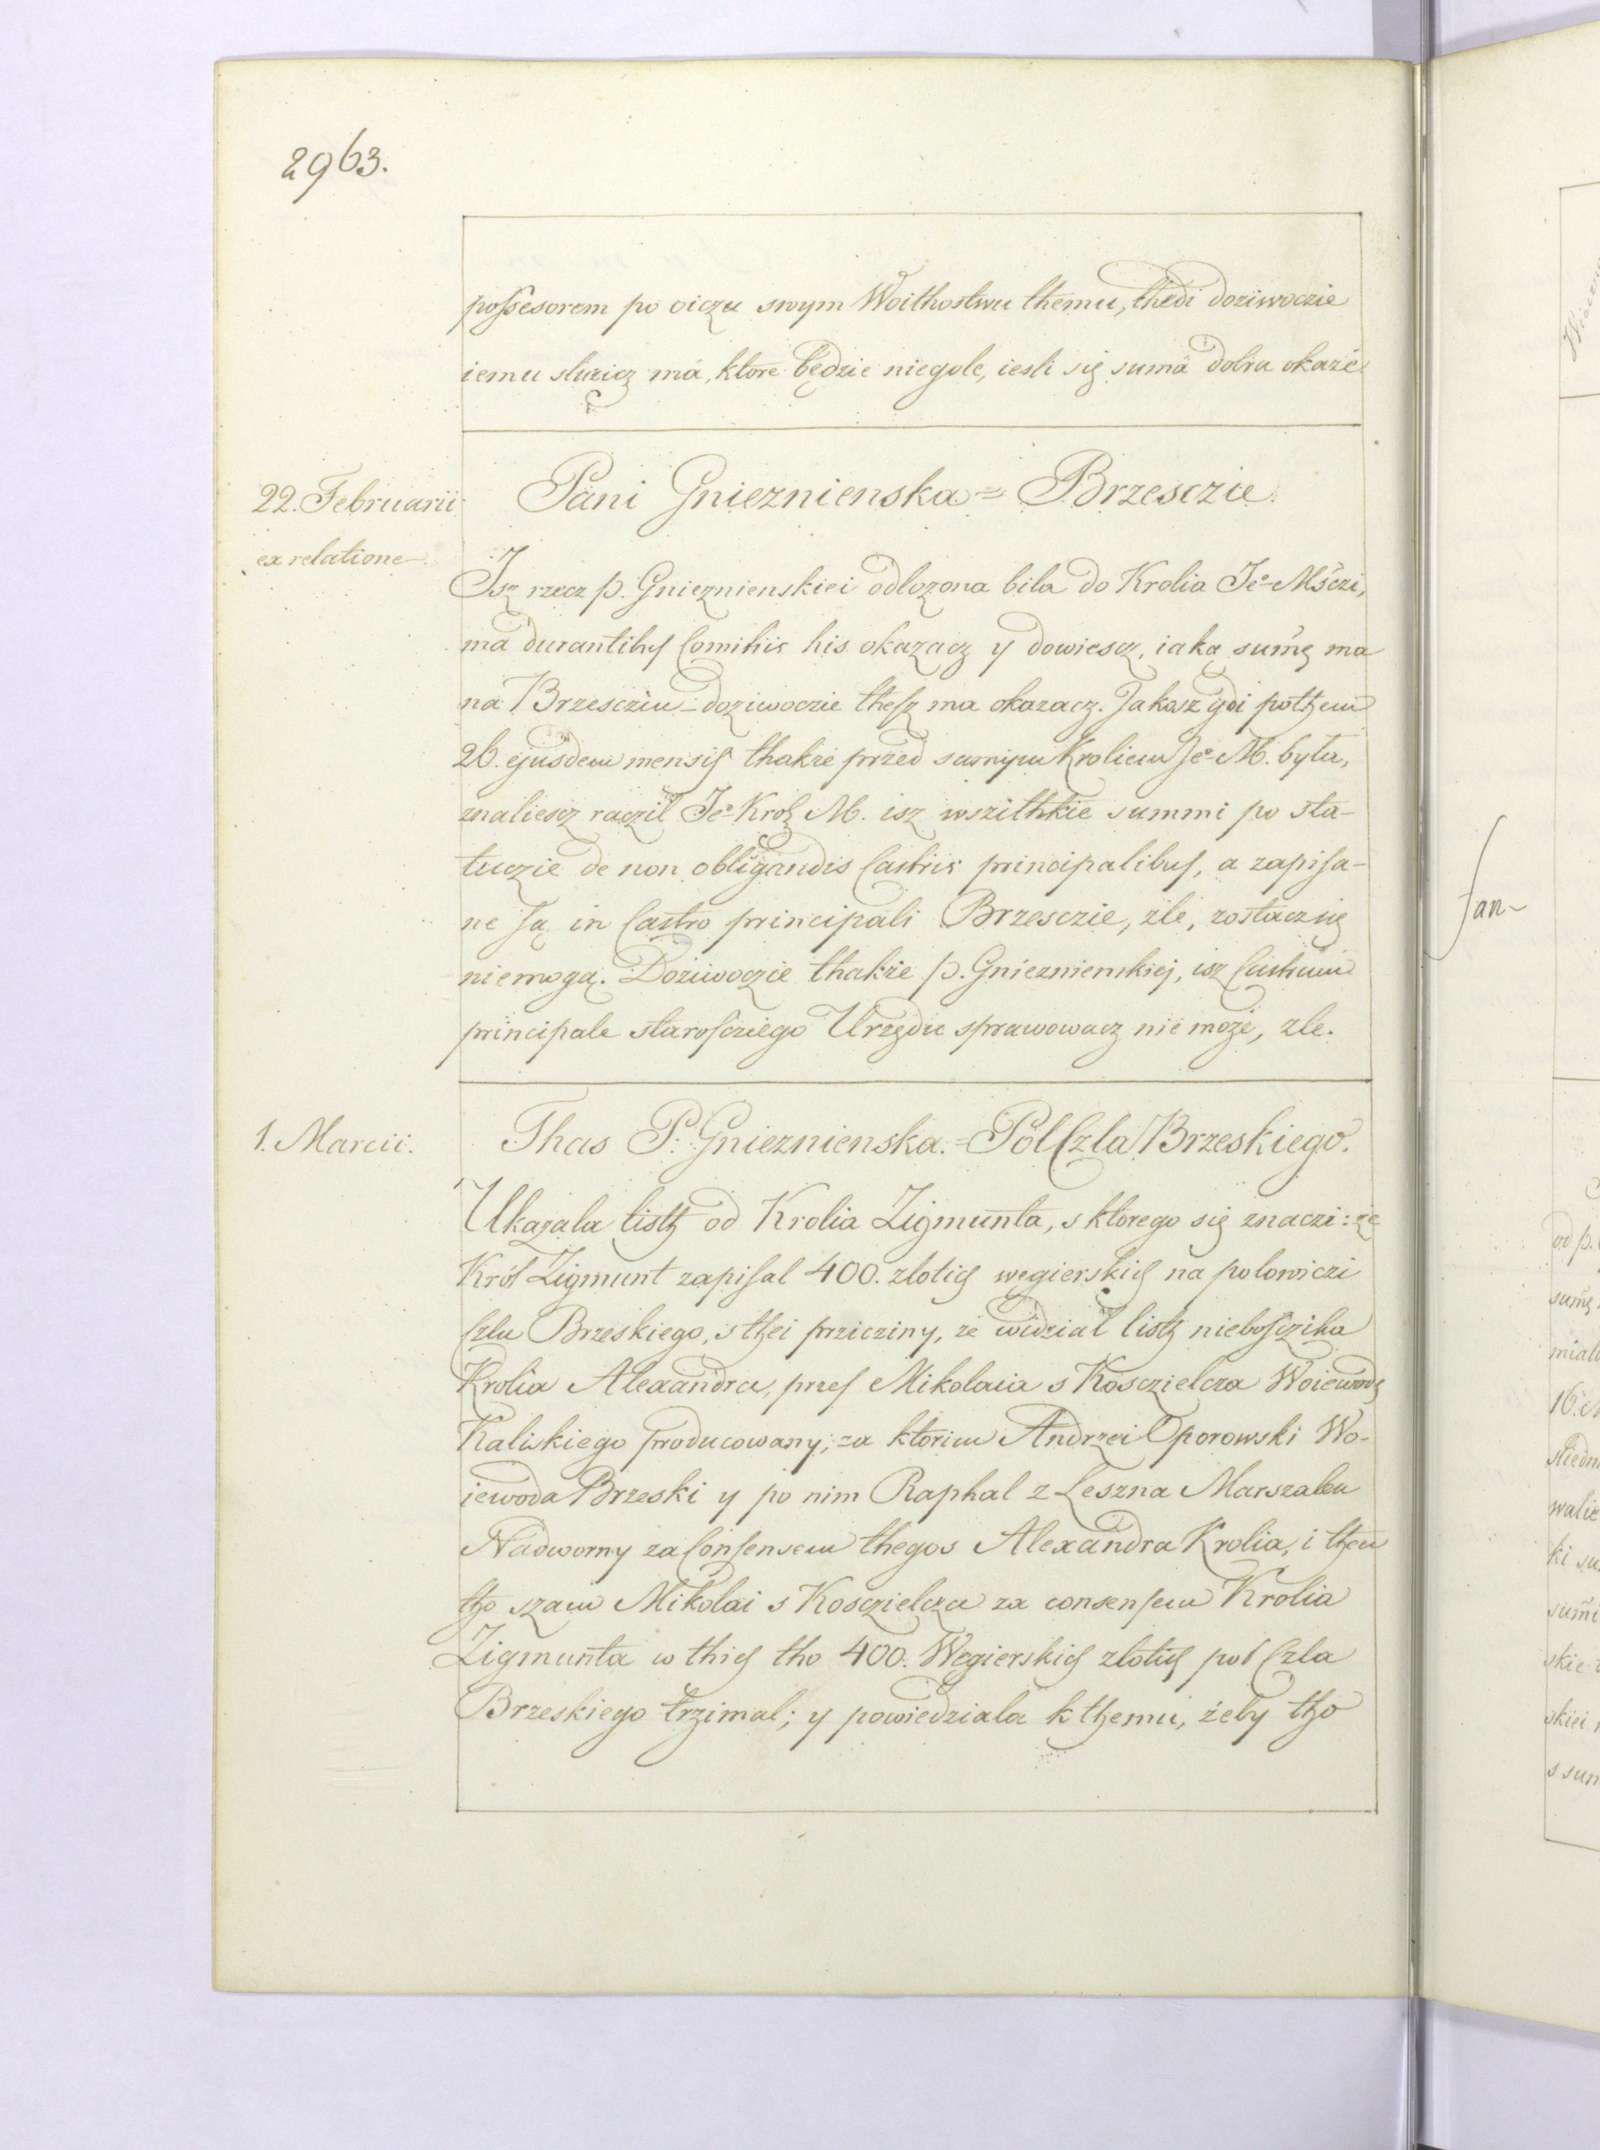 2963.
possesorem po oiczu swym Woithostwu themu, thedi doziwoczie
iemu sluzicz má, ktore będzie niegole, iesli się sumá dobra okaże
22. Februarii
ex relatione
Pani Gnieznienska = Brzesczie.
Isz rzecz p. Gnieznienskiei odlozona bila do Krolia Je° Mśczi,
ma durantibus Comitiis his okazacz y dowiescz, iaką sumę ma
na Brzescziu – doziwoczie thesz ma okazacz. Jakosz gdi pothem
26. ejusdem mensis thakże przed samym Kroliem Je° M. była,
znaliescz raczil Je° Krol M. isz wszithkie summi po sta-
tuczie de non obligandis Castris principalibus, a zapisa-
ne są in Castro principali Brzesczie, zle, zostacz się
niemogą. Dożiwoczie thakże p. Gnieznienskiej, isz Castrum
principale starosciego Urzędu sprawowacz nie może, zle.
1. Marcii.
Thas P. Gnieznienska. = Pol Czla Brzeskiego.
Ukazala listh od Krolia Zigmunta, s ktorego się znaczi: że
Król Zigmunt zapisal 400. zlotich węgierskich na polowiczi
Czla Brzeskiego, s thei przicziny, że widzial listh nieboszika
Krolia Alexandra, przes Mikolaia s Kosczielcza Woiewodę
Kaliskiego producowany; za ktorim Andrzei Oporowski Wo-
iewoda Brzeski y po nim Raphal z Leszna Marszalek
Nadworny za Consensem thegos Alexandra Krolia, i then
tho szam Mikolai s Kosczielcza za consensem Krolia
Zigmunta w thich tho 400. Węgierskich zlotich pol Czla
Brzeskiego trzimal; y powiedziala k themu, żeby tho
fan-